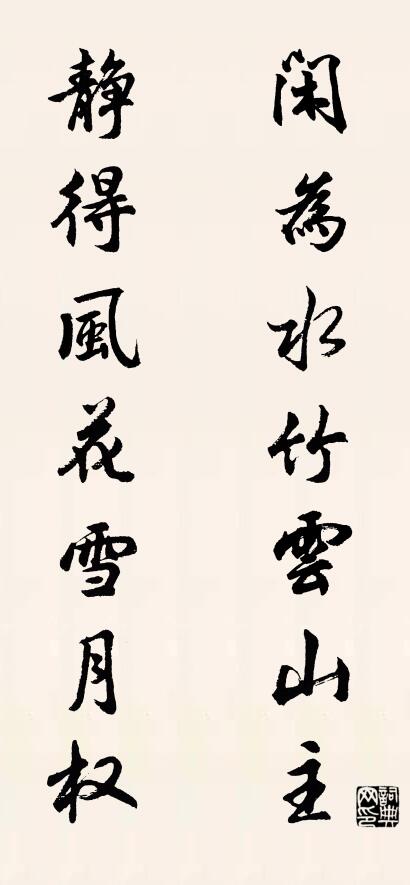 闲為水竹雲山主
静得風花雪月权
詞典
网印